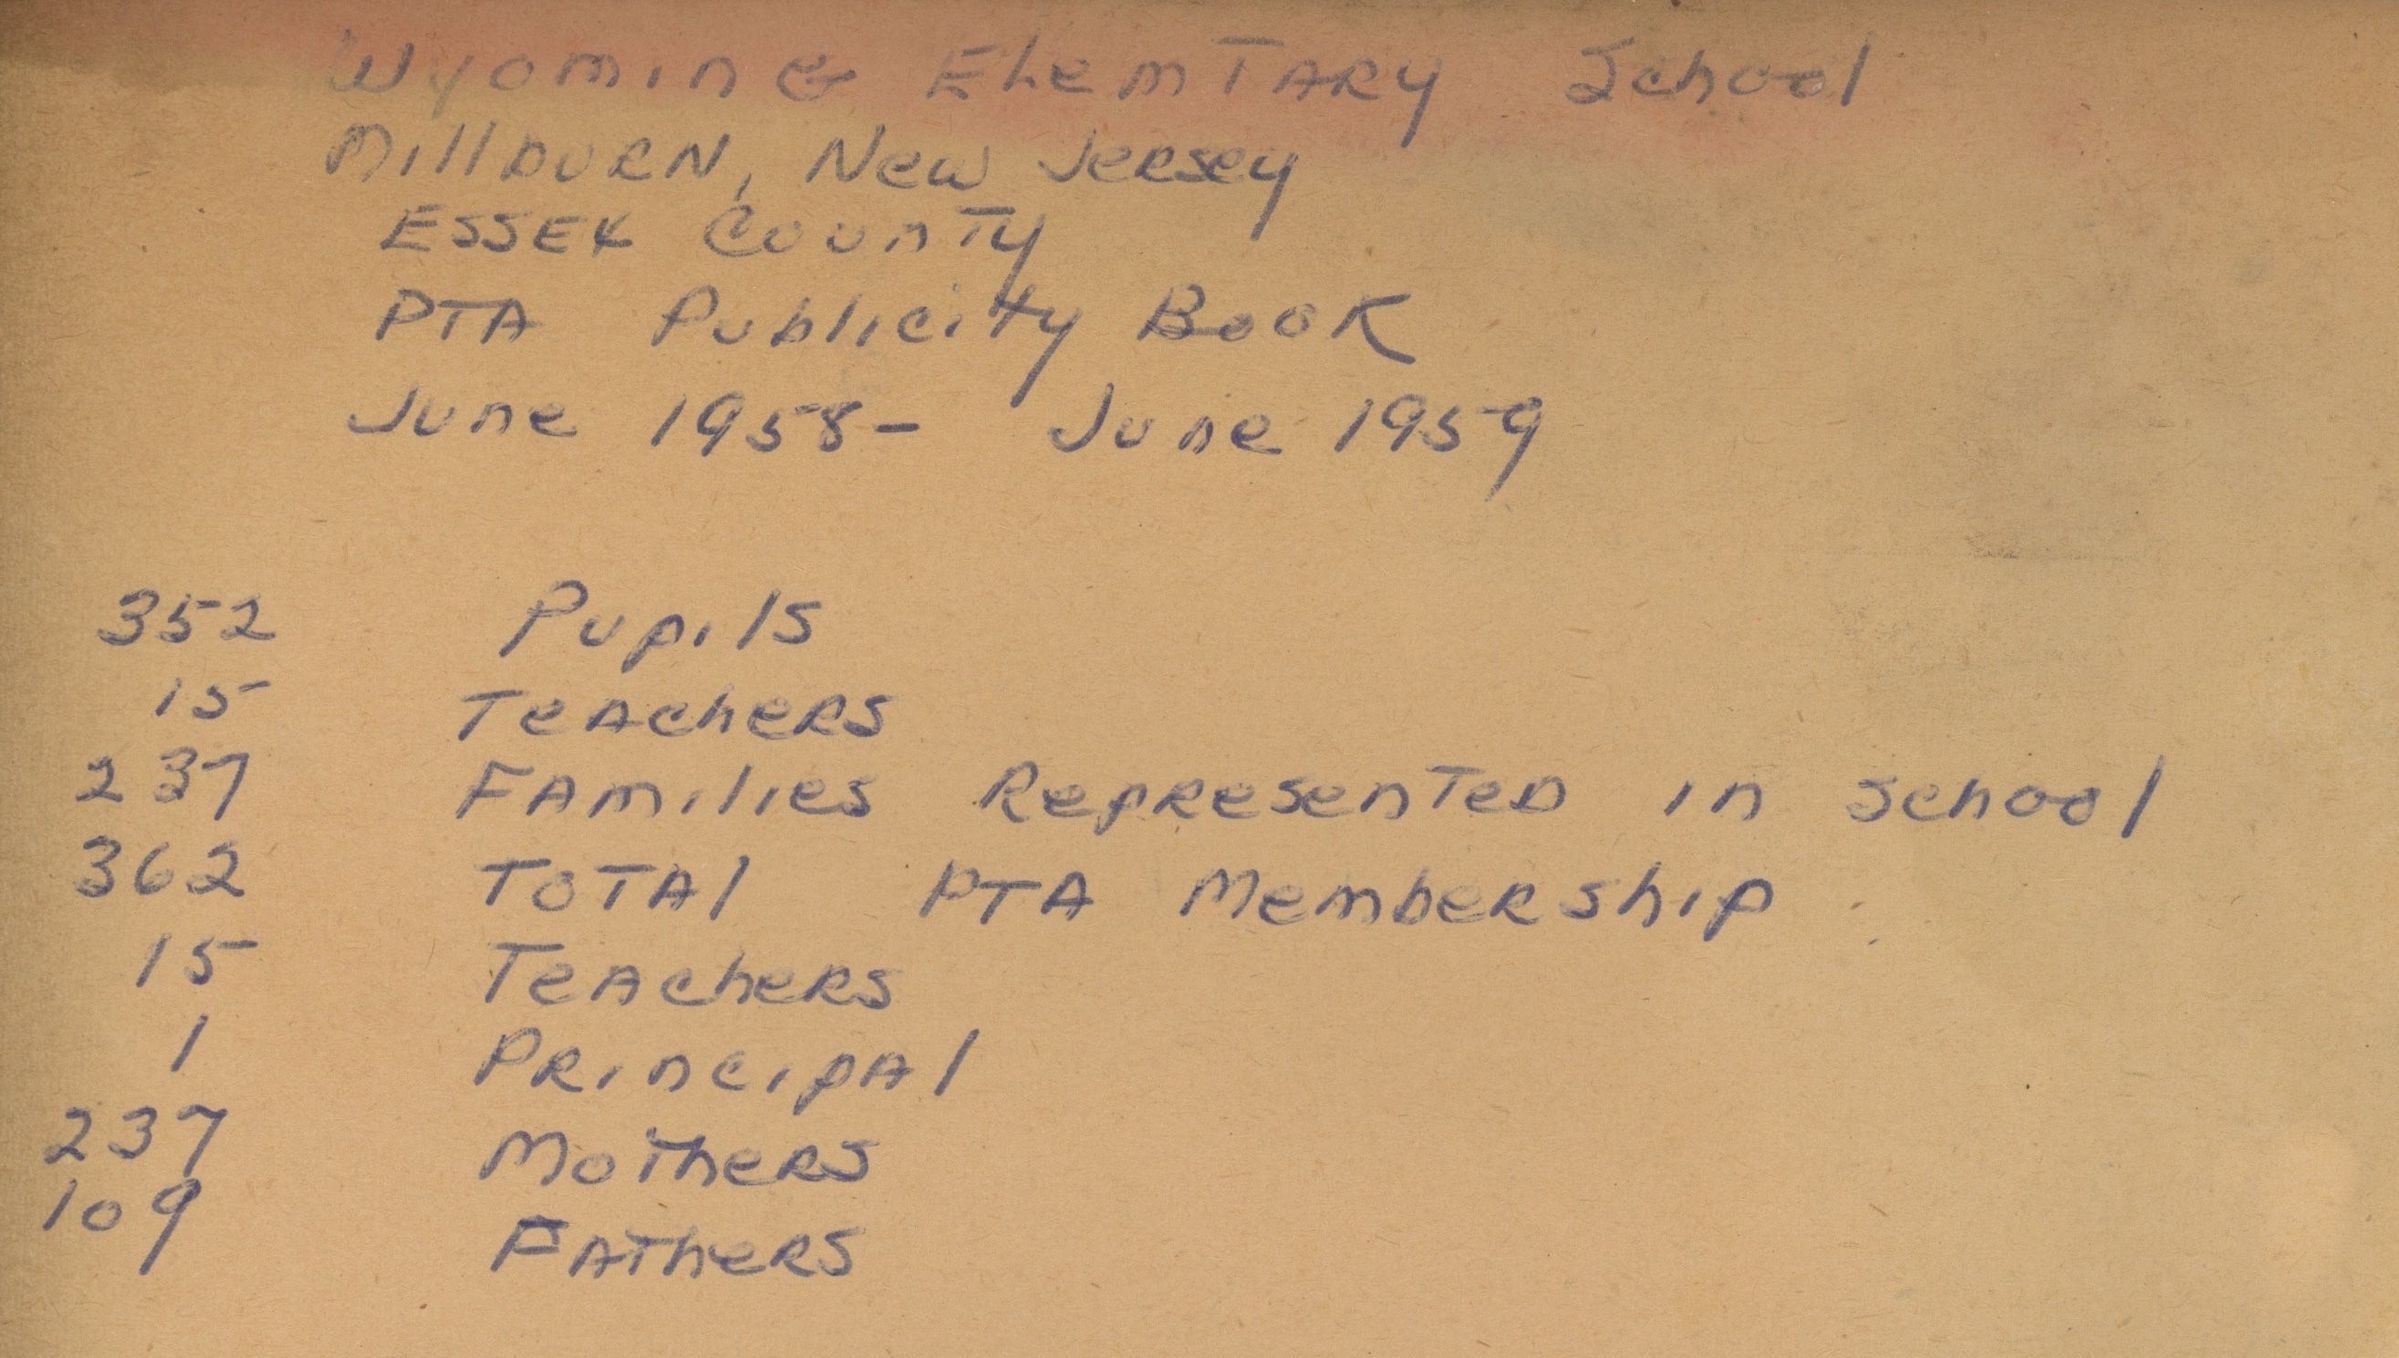 Wyoming Elemtary School
Millburn, New Jersey
Essex County
PTA Publicity Book
June 1958- June 1959
352 Pupils
15 Teachers
237 Families Represented in School
362 Total PTA Membership
15 Teachers
1 Principal
237 Mothers
109 Fathers